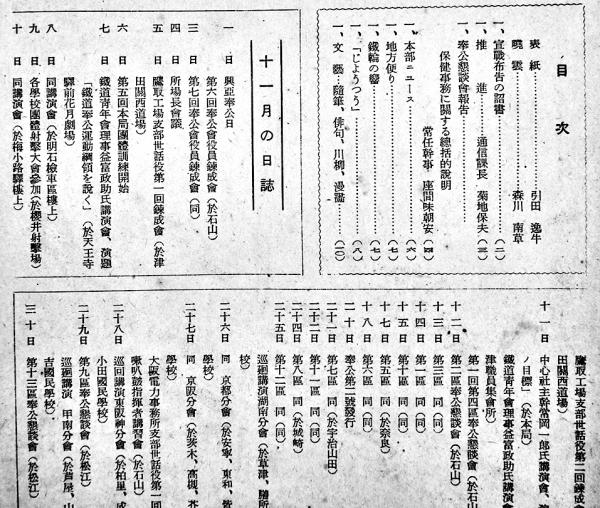 目次
表紙……引田逸牛
曉雲……森川南草
一、宣戰布告の詔書……(二)
一、推進……通信課長 菊地保夫(三)
一、奉公懇談會報告
保健事務に關する總括的說明
常任幹事 座間味朝安(四)
一、本部ニュース……(六)
一、地方便り……(七)
一、鐵輪の響……(七)
一、「じょうつう」……(八)
一、文藝…隨筆、俳句、川柳、漫談……(二〇)
十一月の日誌
一日 興亞奉公日
第六回奉公會役員鍊成會(於石山)
三日 第七回奉公會役員鍊成會(同)
四日 所場長會議
五日 鷹取工場支部世話役第一回鍊成會(於津
田關西道場)
六日 第五回本局團體訓練開始
七日 鐵道青年會理事益富政助氏講演會、演題
「鐵道奉公運動綱領を說く」(於天王寺
驛前花月劇場)
八日 同講演會(於明石檢車區樓上)
九日 各學校團體射擊大會參加(於櫻井射擊場)
十日 同講演會(於梅小路驛樓上)
鷹取工場支部世話役第二回鍊成會
田關西道場)
十一日 中心社主幹常岡一郎氏講演會、
ノ目標」(於本局)
鐵道青年會理事益富政助氏講演會
津職員集會所)
第一回第四區奉公懇談會(於石山
十二日 第二區奉公懇談會(於石山)
十三日 第三區(同)(同)
十四日 第一區(同)(同)
十五日 第十區(同)(同)
十七日 第五區(同)(於奈良)
十八日 第六區(同)(同)
二十日 奉公第二號發行
二十一日 第七區(同)(於宇治山田)
二十二日 第十一區(同)(同)
二十四日 第八區(同)(於城崎)
二十五日 第十二區(同)(同)
巡廻講演湖南分會(於草津、膳所
校)
二十六日 同 京都分會(於安寧、東和、皆
學校)
二十七日 同 京阪分會(於茨木、高槻、芥
學校)
大阪電力事務所支部世話役第一回
喇叭鼓指揮者講習會(於石山)
二十八日 巡回講演東阪神分會(於柏里、成
小田國民學校)
二十九日 第九區奉公懇談會(於松江)
巡廻講演、甲南分會(於芦屋、山
吉國民學校)
三十日 第十三區奉公懇談會(於松江)